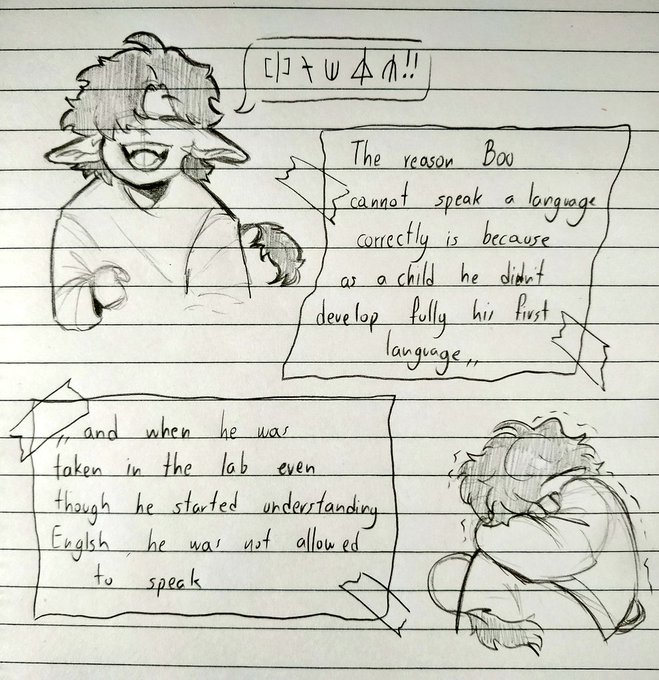 The reason Boo
cannot speak a language
correctly is because
as a child he didn't
develop fully his first
language,,
,, and when he was
taken in the lab even
though he started understanding
Englsh he was not allowed
to speak